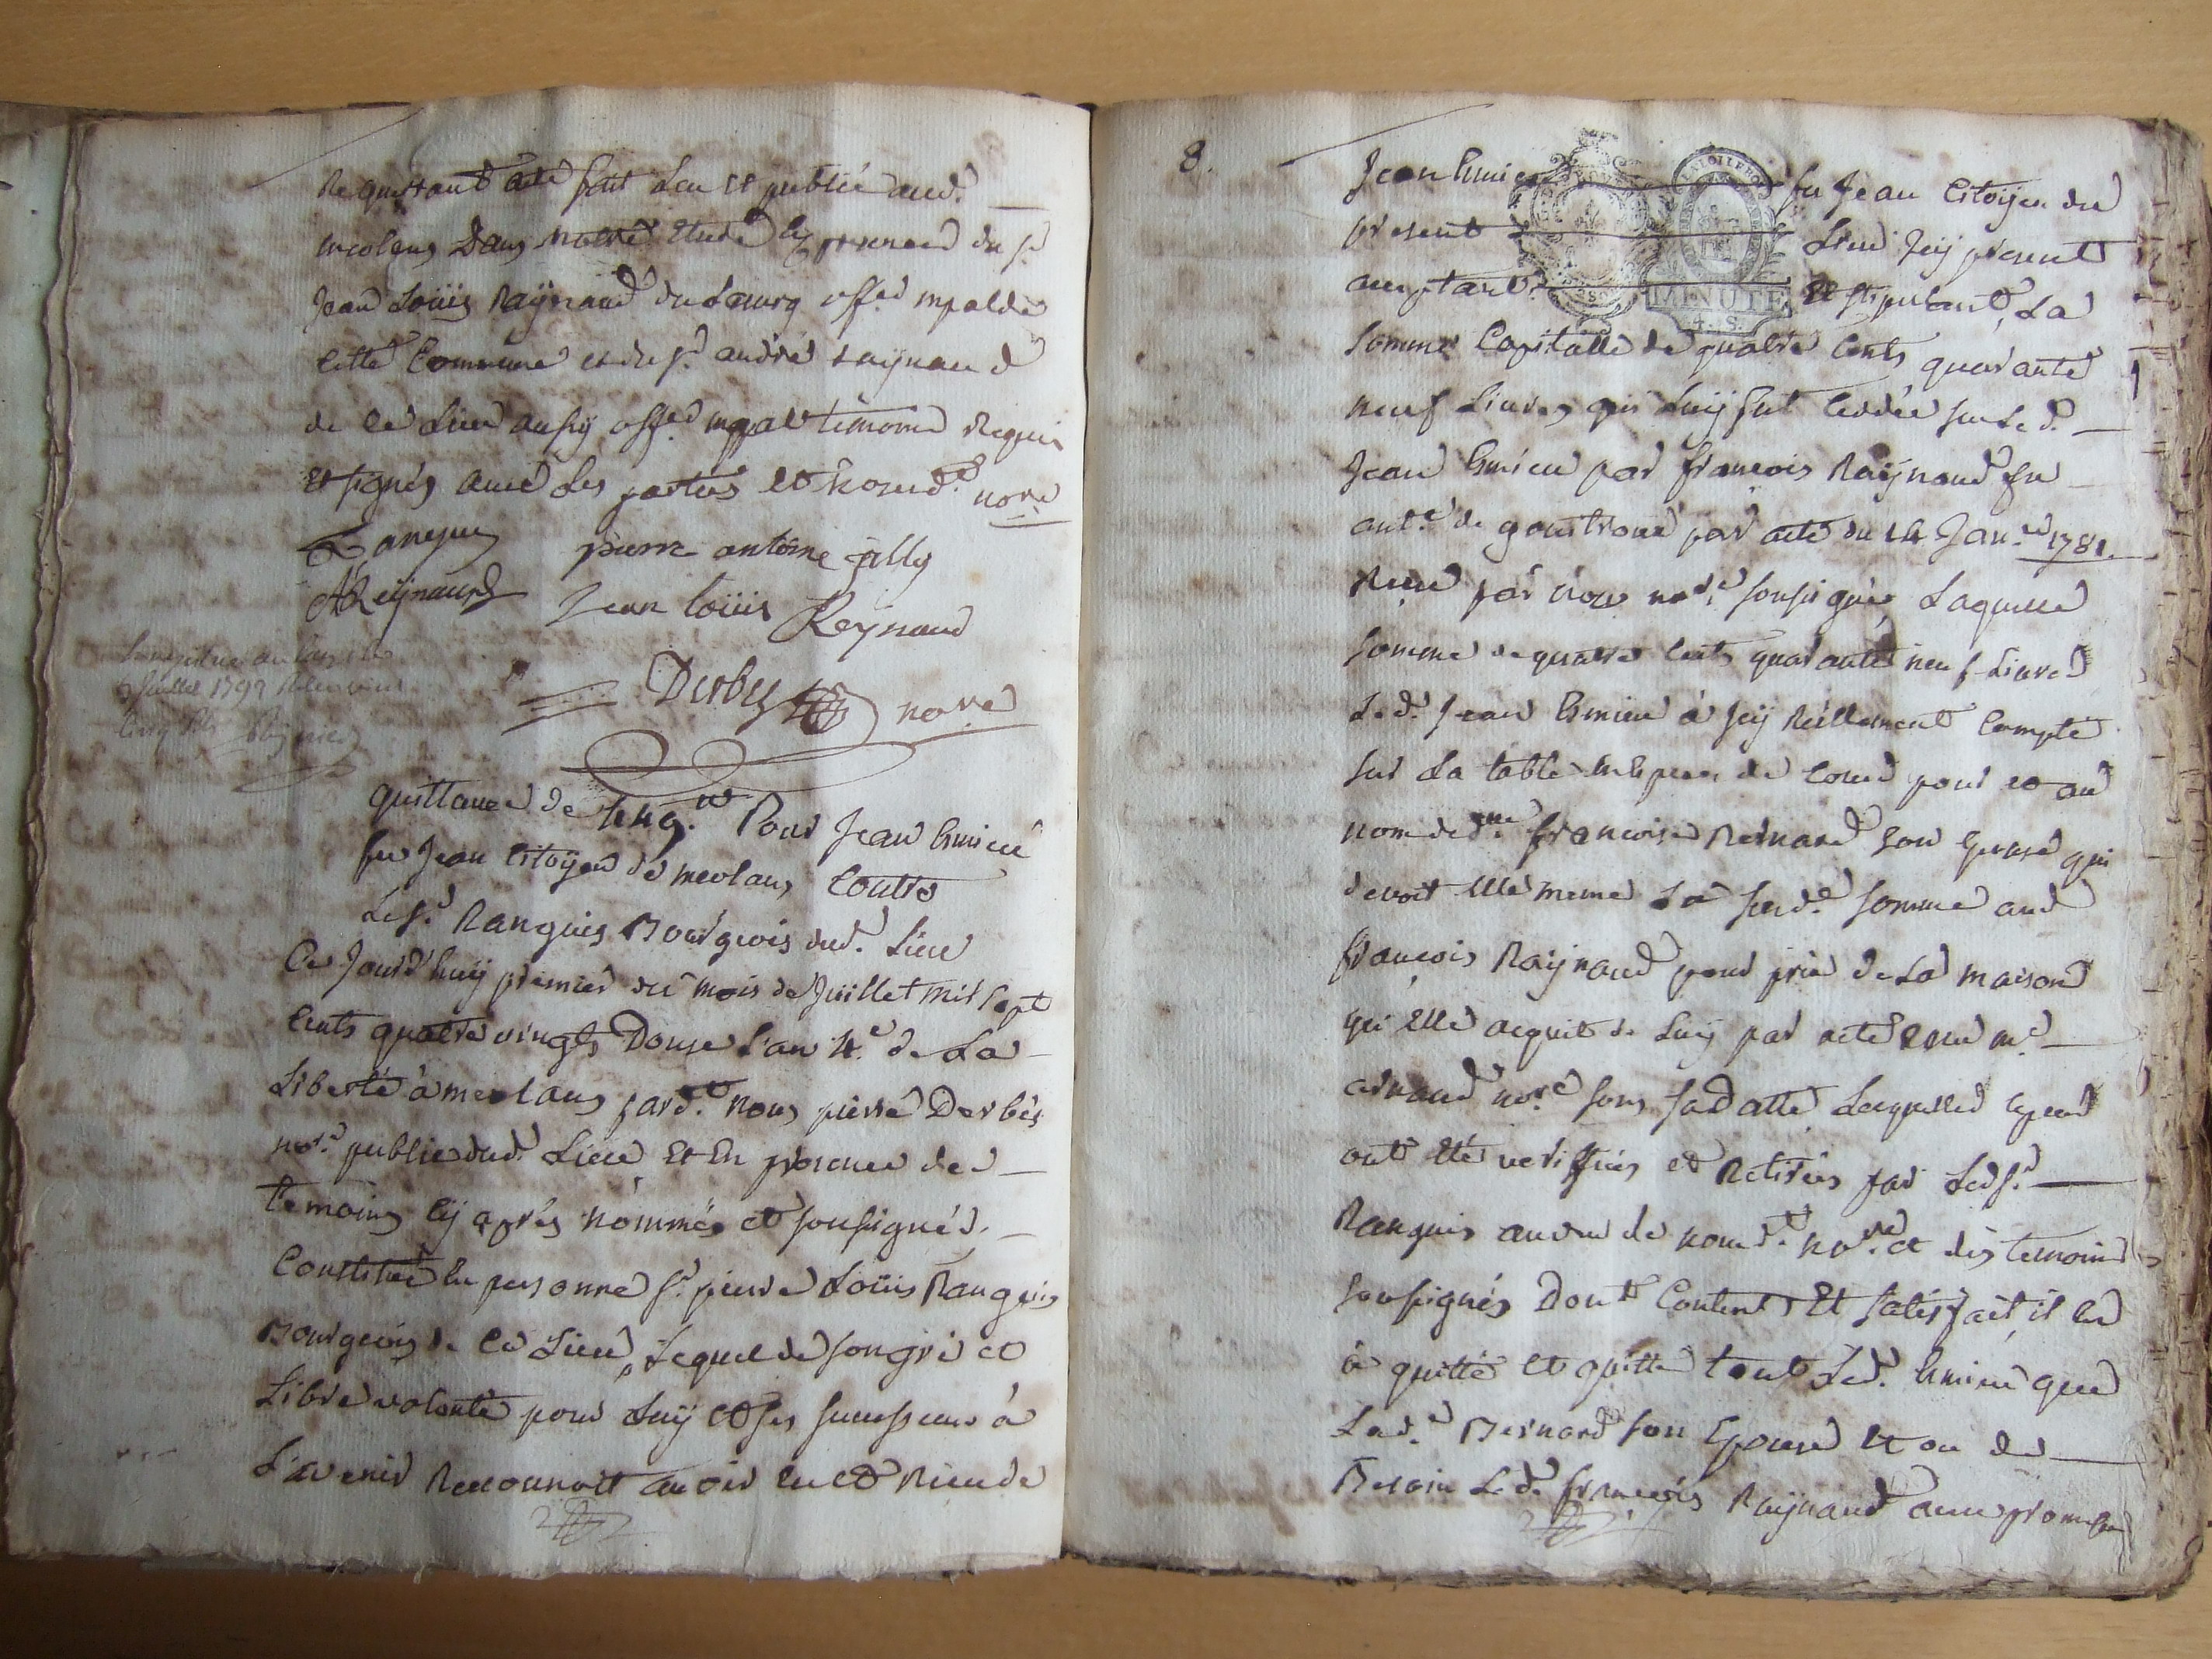 Requerant acte fait Leu et publié aud.
meolans Dans notre Etude En presence du s.r
Jean Loüis Raÿnaud du Laurq off.er mpal de
cette Commune et du s.r andré raÿnaud
de ce Lieu ausÿ off.er mpal temoins Requis
Et signés avec Les parties et nousd.t no.re
Ranguis pierre antoine jally
AReÿnaud Jean loüis Reÿnaud
Derbes no.re
juillet 1792
quittance de 449.# Pour Jean Emieu
feu Jean Citoÿen de meolans Contre
Le s.r Ranguis Bourgeois dud. Lieu
Ce Jourd'huÿ premier du mois de Juillet mil sept
Cents quatre vingts Douze L'an 4.e de La
Liberté à meolans pard.t nous pierre Derbés
no.re public dud. Lieu Et En presence des
temoins Cÿ aprés nommés et soussignés.
Constitué En personne s.r pierre Loüis Ranguis
Bourgeois de ce Lieu, Lequel de son gré et
Libre volonté pour Luÿ et ses successeurs à
L'avenir Reconnoit avoir Eu et Rieu de
8.
MINUTE
4. S.
Jean Emieu feu Jean Citoÿen du
present Lieu Jcÿ present
acceptant Et stipulant, La
somme Capitalle de quatre Cents quarante
neuf Livres qui Luÿ fut Ceddée sur Le d.
Jean Emieu par francois Raÿnaud feu
ant.e de par acte du 14 Jan.er 1781.
Rieu par nous no.re soussigné, Laquelle
somme de quatre Cents quarante neuf Livres
Led. Jean Emieu à Jcÿ Réellement Compté
sur La table En Especes de Cours pour et au
nom de d.lle francoise Bernard son Epouse qui
devoit Elle meme La susd.e somme aud
françois Raÿnaud pour prix de La maison
qu'Elle acquit de Luÿ par acte Rieu m.e
arnaud no.re sous sa Datte, Lesquelles Especes
ont Eté verifiées et Retirées par Led s.r
Ranguis au vu de nousd.t no.re et des temoins
soussignés Dont Content Et satisfait, il En
à quitté et quitte tant Led. Emieu que
Lad.e Bernard son Epouse Et ou de
Besoin Led. françois Raÿnaud avec promesse